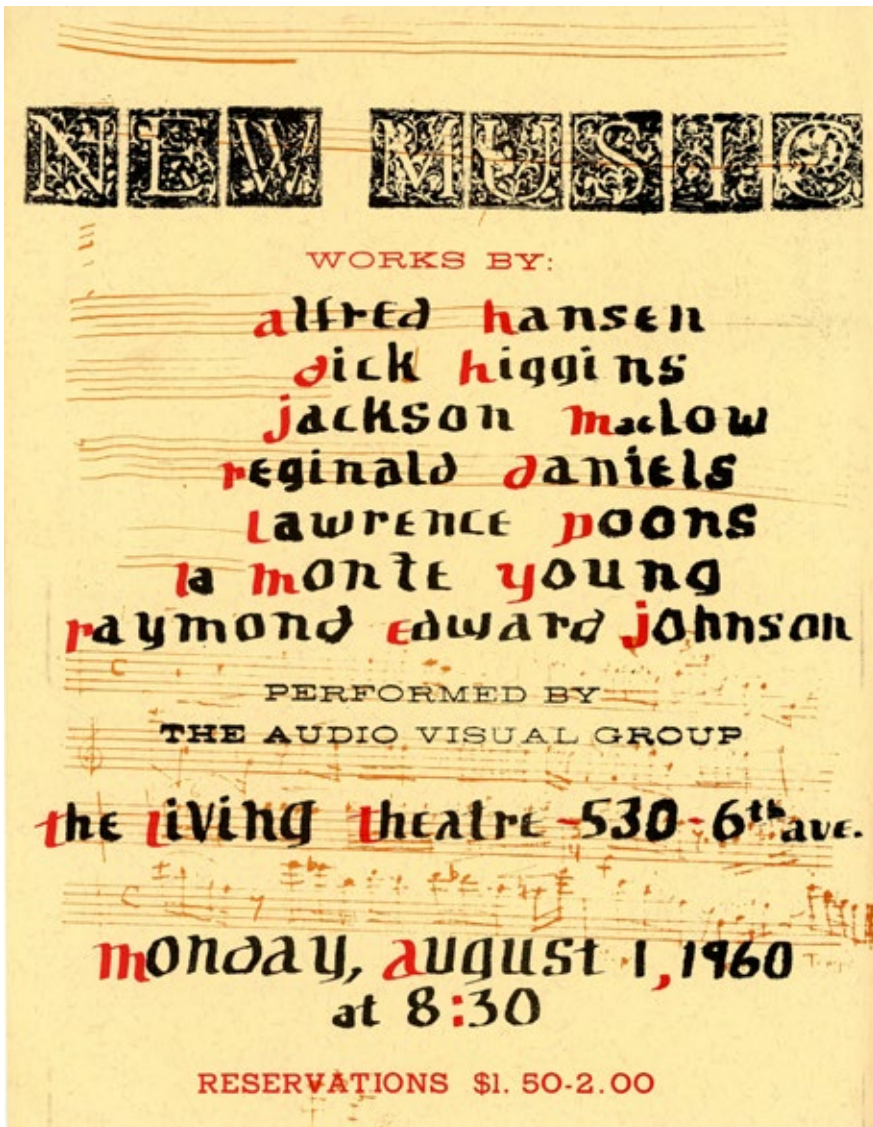 NEW MUSIC
WORKS BY:
alfred hansen
dick higgins
jackson maclow
reginald daniels
lawrence poons
la monte young
raymond edward johnson
PERFORMED BY
THE AUDIO VISUAL GROUP
the living theatre -530-6th ave.
monday, august 1, 1960
at 8:30
RESERVATIONS $1.50-2.00